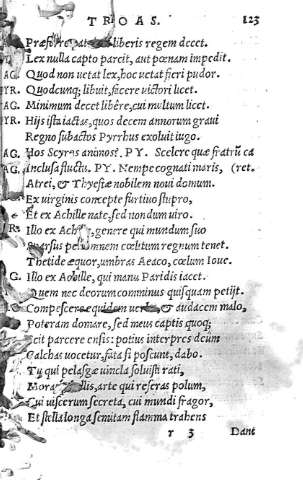 TROAS. 123
Præferre patriam liberis regem decet.
Lex nulla capto parcit, aut pœnam impedit.
AG. Quod non uetat lex, hoc uetat fieri pudor.
YR. Quodcunq; libuit, facere uictori licet.
AG. Minimum decet libêre, cui multum licet.
YR. Hijs ista iactas, quos decem annorum graui
Regno subactos Pyrrhus exoluit iugo.
AG. Hos Scyros animos? PY. Scelere quæ fratrũ ca
AG. Inclusa fluctu. PY. Nempe cognati maris, (ret.
Atrei, & Thyestæ nobilem noui domum.
Ex uirginis concepte furtiuo stupro,
Et ex Achille nate, sed nondum uiro.
R. Illo ex Achille, genere qui mundum suo
omnem cœlitum regnum tenet.
Thetide æquor, umbras Aeaco, cœlum Ioue.
G. Illo ex Achille, qui manu Paridis iacet.
Quem nec deorum comminus quisquam petijt.
Compescere equidem uerba, & audacem malo,
Poteram domare, sed meus captis quoq;
scit parcere ensis: potius interpres deum
Calchas uocetur, fata si poscunt, dabo.
Tu qui pelasgæ uincla soluisti rati,
arte qui reseras polum,
Cui uiscerum secreta, cui mundi fragor,
Et stella longa semitam flamma trahens
T 3 Dant